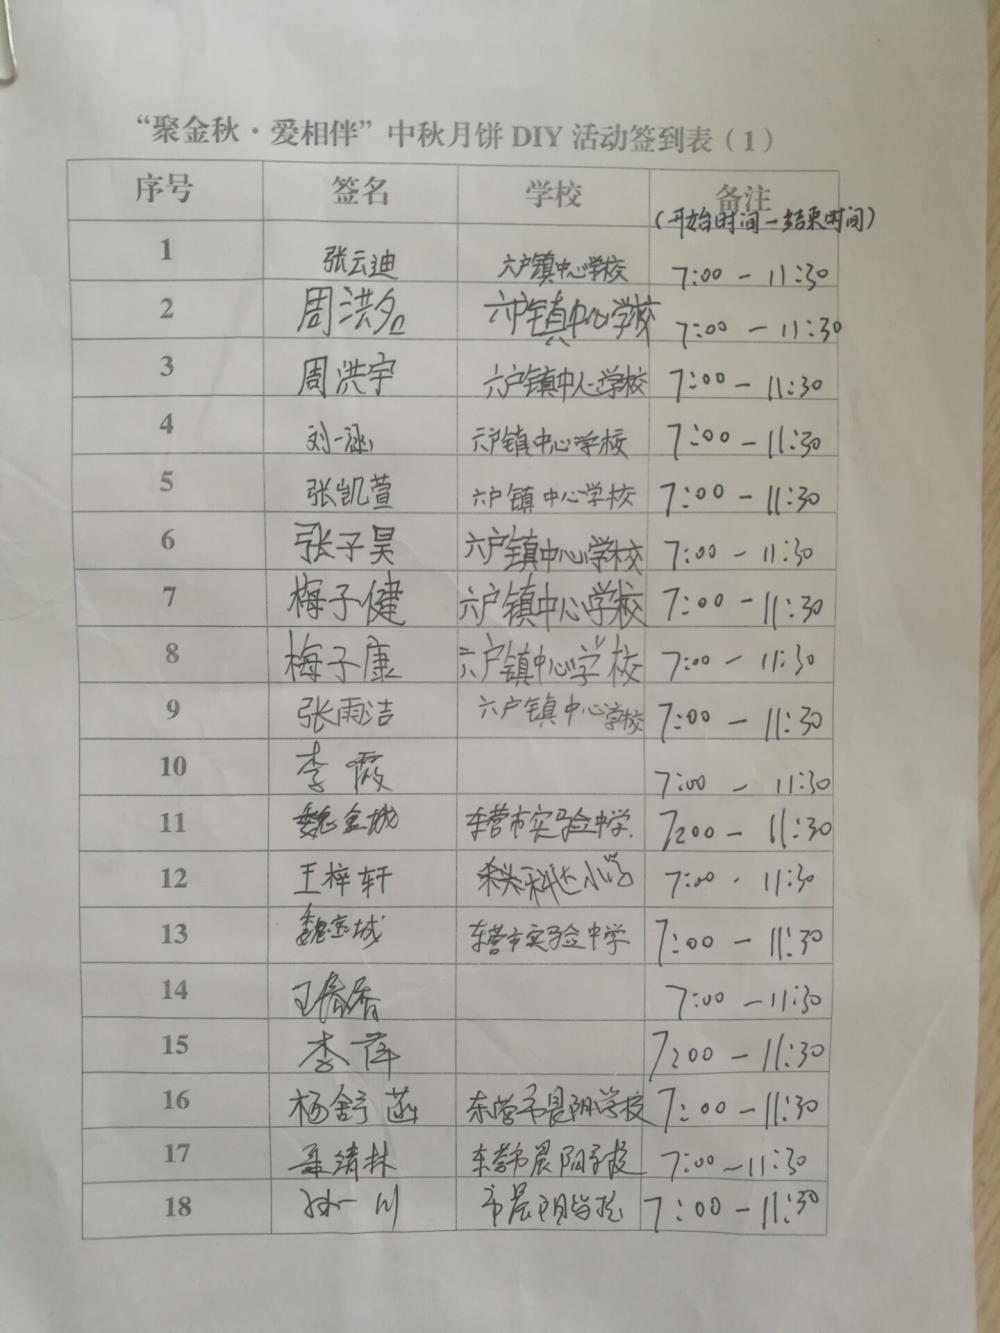 “聚金秋·爱相伴”中秋月饼 DIY 活动签到表（1）
序号 签名 学校 备注
（开始时间－结束时间）
1 张云迪 六户镇中心学校 7:00 - 11:30
2 周洪名 六户镇中心学校 7:00 - 11:30
3 周洪宇 六户镇中心学校 7:00 - 11:30
4 刘一涵 六户镇中心学校 7:00 - 11:30
5 张凯萱 六户镇中心学校 7:00 - 11:30
6 张子昊 六户镇中心学校 7:00 - 11:30
7 梅子健 六户镇中心学校 7:00 - 11:30
8 梅子康 六户镇中心学校 7:00 - 11:30
9 张雨洁 六户镇中心学校 7:00 - 11:30
10 李霞 7:00 - 11:30
11 魏金城 东营市实验中学 7:00 - 11:30
12 王梓轩 科达小学 7:00 - 11:30
13 魏金城 东营市实验中学 7:00 - 11:30
14 7:00 - 11:30
15 李萍 7:00 - 11:30
16 杨舒菡 东营市晨阳学校 7:00 - 11:30
17 聂靖林 东营市晨阳学校 7:00 - 11:30
18 孙一川 市晨阳学校 7:00 - 11:30